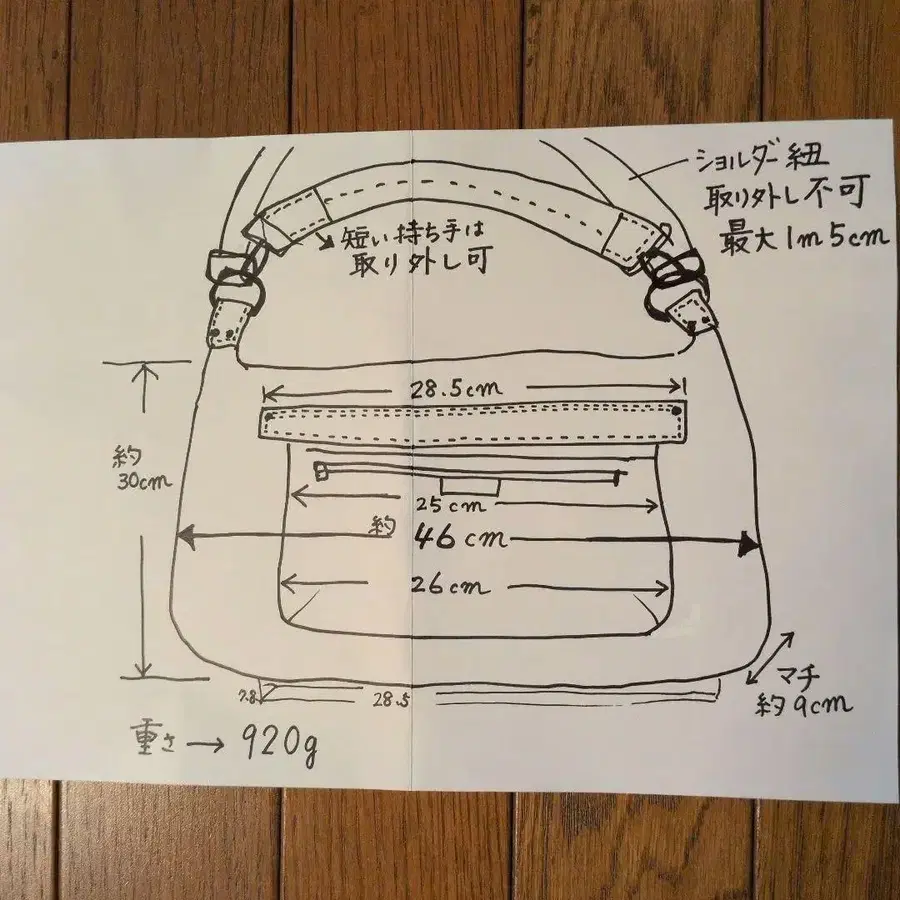 ショルダー紐
取り外し不可
最大1m5cm
短い持ち手は
取り外し可
28.5cm
約
30cm
25cm
約 46cm
26cm
マチ
約9cm
7.8
28.5
重さ→920g